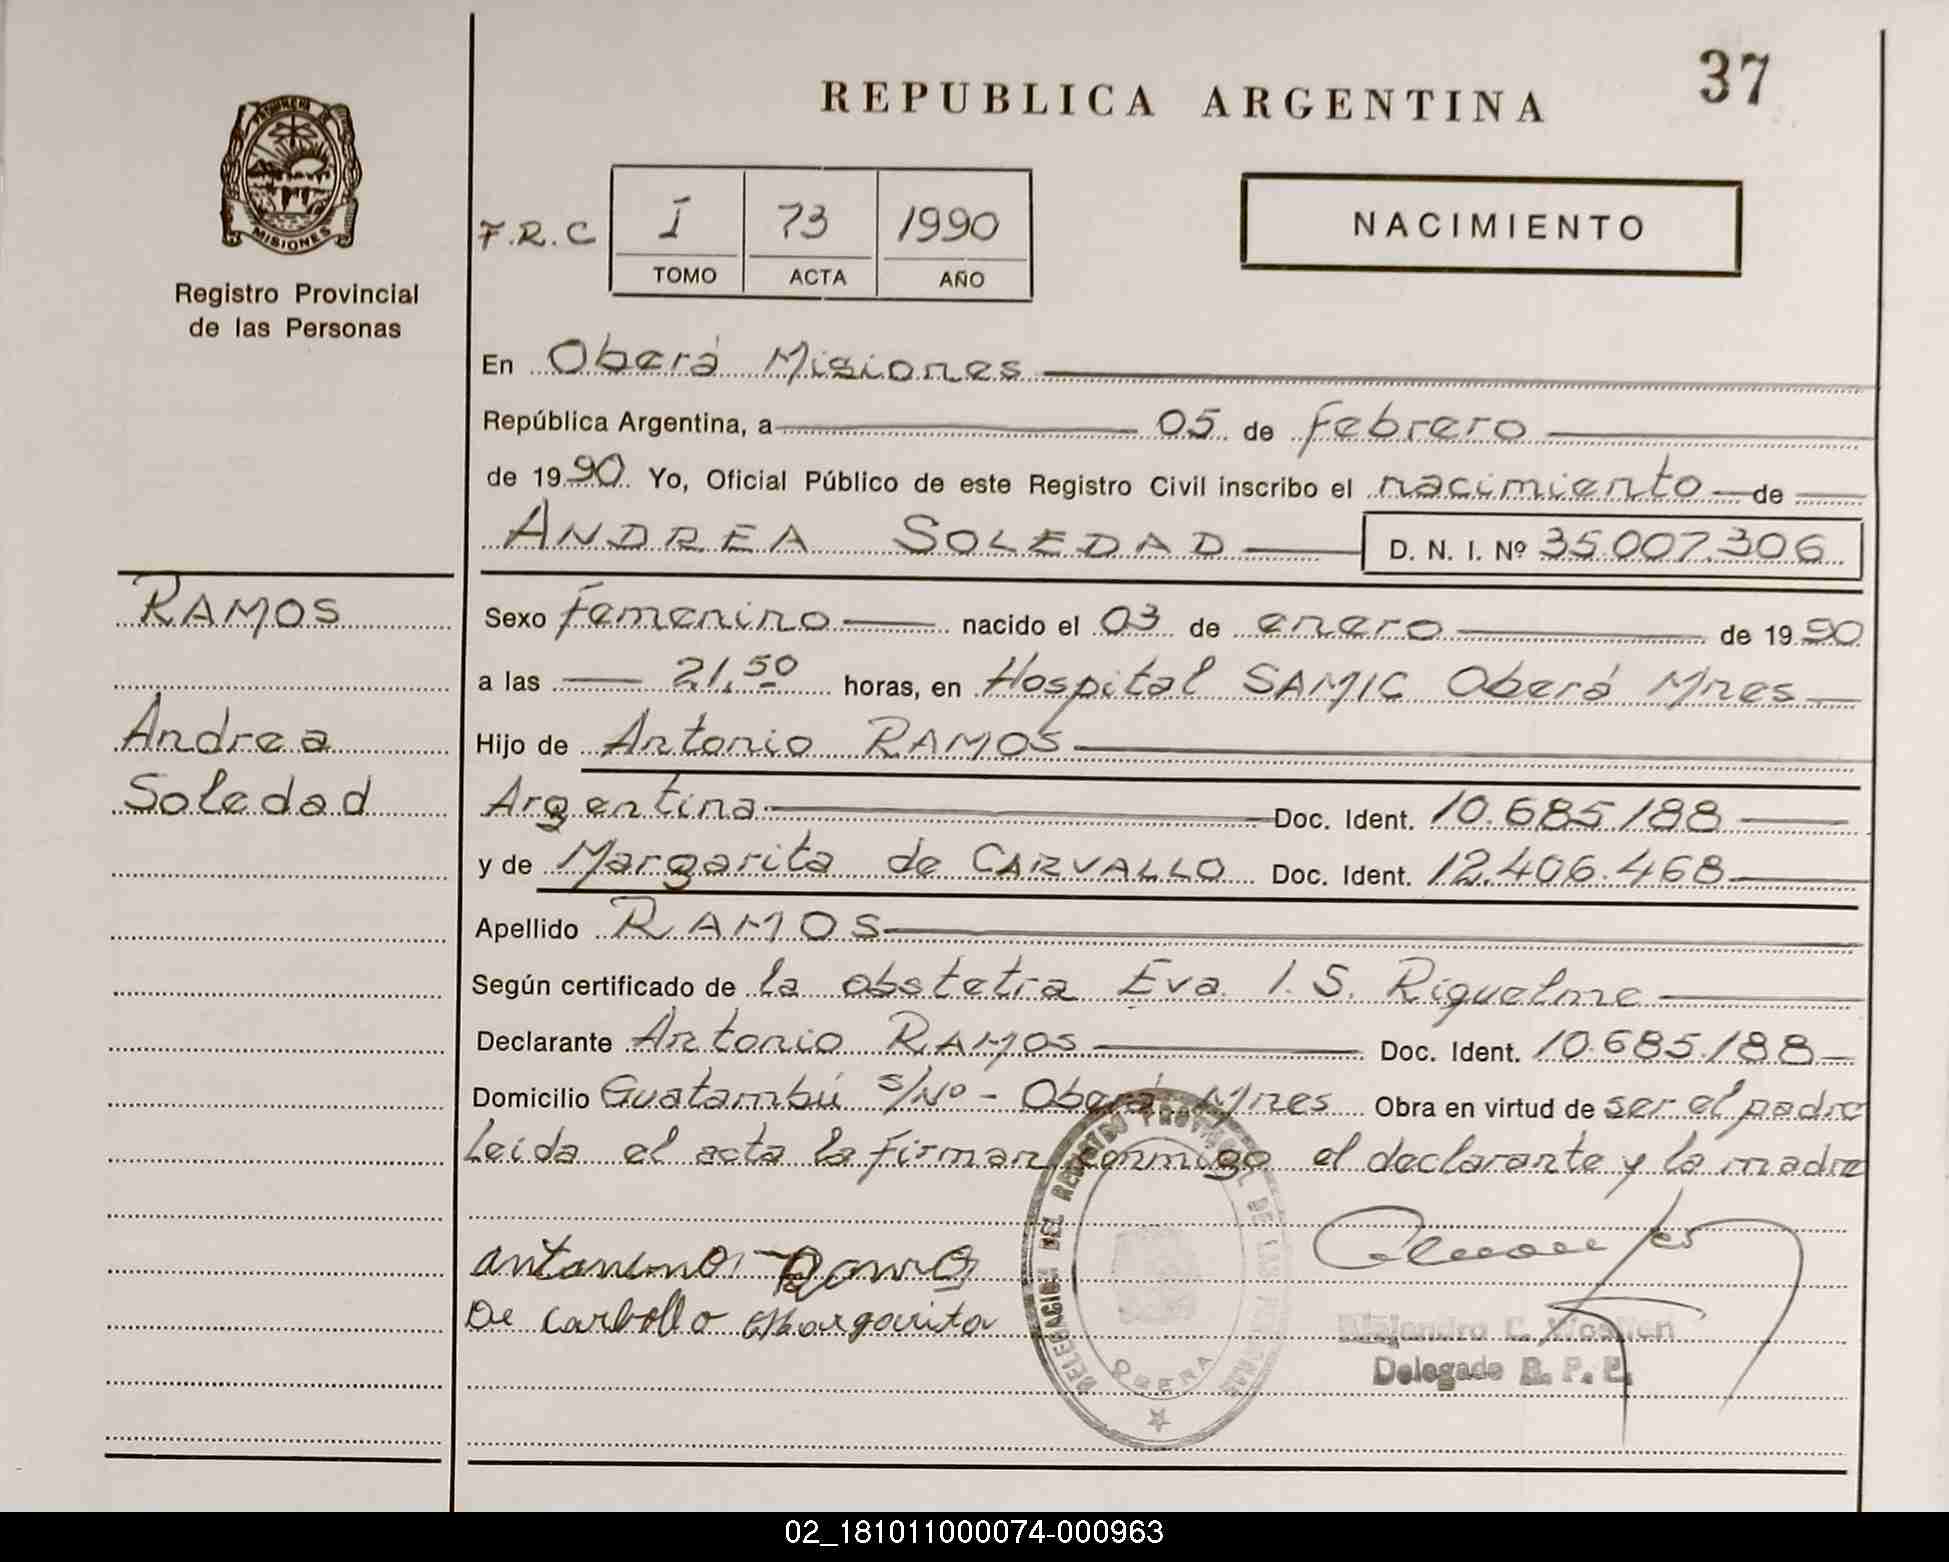 37
REPUBLICA ARGENTINA
PROVINCIA DE
MISIONES
Registro Provincial
de las Personas
F.R.C I 73 1990
TOMO ACTA AÑO
NACIMIENTO
En Oberá Misiones
República Argentina, a 05 de Febrero
de 1990 Yo, Oficial Público de este Registro Civil inscribo el nacimiento de
ANDREA SOLEDAD D. N. I. Nº 35.007.306
RAMOS
Andrea
Soledad
Sexo Femenino nacido el 03 de enero de 1990
a las 21,50 horas, en Hospital SAMIC Oberá Mnes
Hijo de Antonio RAMOS
Argentina Doc. Ident. 10.685.188
y de Margarita de CARVALLO Doc. Ident. 12.406.468
Apellido RAMOS
Según certificado de la obstetra Eva I. S. Riquelme
Declarante Antonio RAMOS Doc. Ident. 10.685.188
Domicilio Guatambú s/Nº - Oberá Mnes Obra en virtud de ser el padre
Leida el acta la firman conmigo el declarante y la madre
De Carballo Margarita
DELEGACION DEL REGISTRO PROVINCIAL DE LAS PERSONAS
OBERA
Alejandro C.
Delegado R. P. P.
02_181011000074-000963